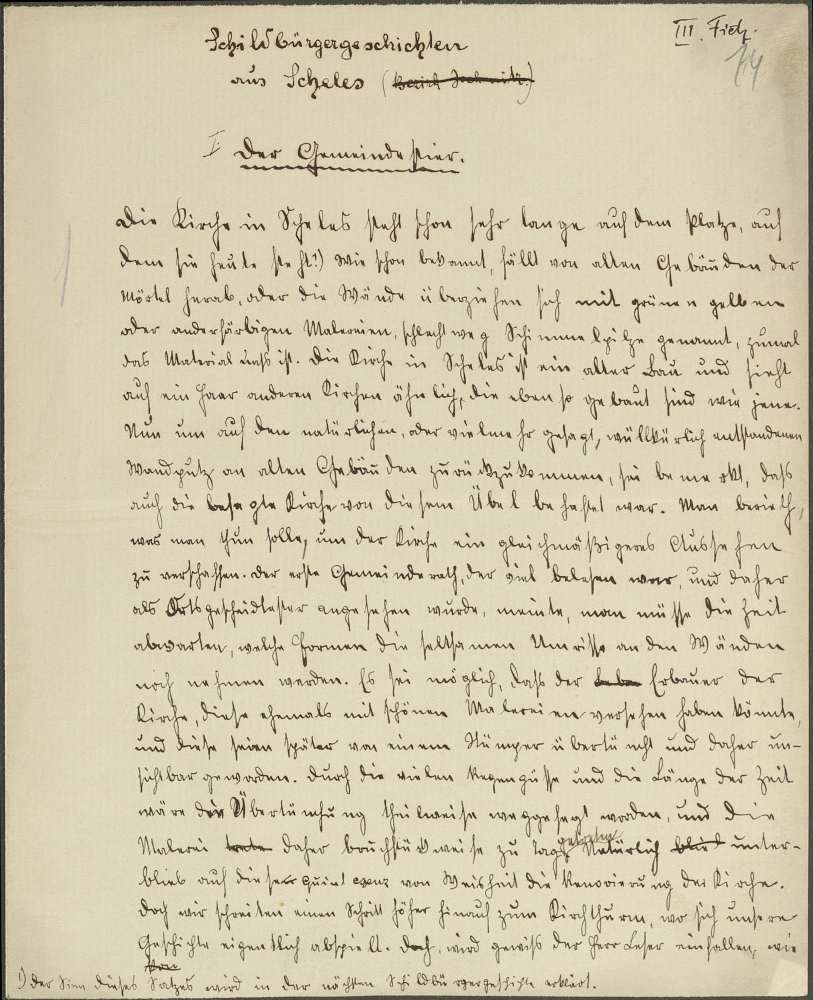 III. Fietz.
14
Schildbürgergeschichten
aus Scheles (Bezirk Jechnitz.)
I. Der Gemeindestier.
Die Kirche in Scheles steht schon sehr lange auf dem Platze, auf
dem sie heute steht.1) Wie schon bekannt, fällt von alten Gebäuden der
Mörtel herab, oder die Wände überziehen sich mit grünen gelben
oder andersfärbigen Malereien, schlechtweg Schimmelpilze genannt, zumal
das Material nass ist. Die Kirche in Scheles ist ein alter Bau und sieht
auf ein Haar anderen Kirchen ähnlich, die eben so gebaut sind wie jene.
Nun um auf den natürlichen, oder vielmehr gesagt, willkürlich entstandenen
Wandputz an alten Gebäuden zurückzukommen, sei bemerkt, dass
auch die besagte Kirche von diesem Übel behaftet war. Man berieth,
was man thun solle, um der Kirche ein gleichmäßigeres Aussehen
zu verschaffen. Der erste Gemeinderath, der viel belesen war, und daher
als Ortsgescheidtester angesehen wurde, meinte, man müsse die Zeit
abwarten, welche Formen die seltsamen Umrisse an den Wänden
noch nehmen werden. Es sei möglich, dass der Erbauer der
Kirche, diese ehemals mit schönen Malereien versehen haben könnte,
und diese seien später von einem Stümper übertüncht und daher un-
sichtbar geworden. Durch die vielen Regengüsse und die Länge der Zeit
wäre die Übertünchung theilweise weggefegt worden, und die
Malerei trete daher bruchstückweise zu Tage getreten. Natürlich blieb unter-
blieb auf diese Quintessenz von Weisheit die Renovierung der Kirche.
Doch wir schreiten einen Schritt höher hinauf zum Kirchthurm, wo sich unsere
Geschichte eigentlich abspielt. Doch, wird gewiss der Herr Leser einfallen, wie
1) Der Sinn dieses Satzes wird in der nächsten Schildbürgergeschichte erklärt.